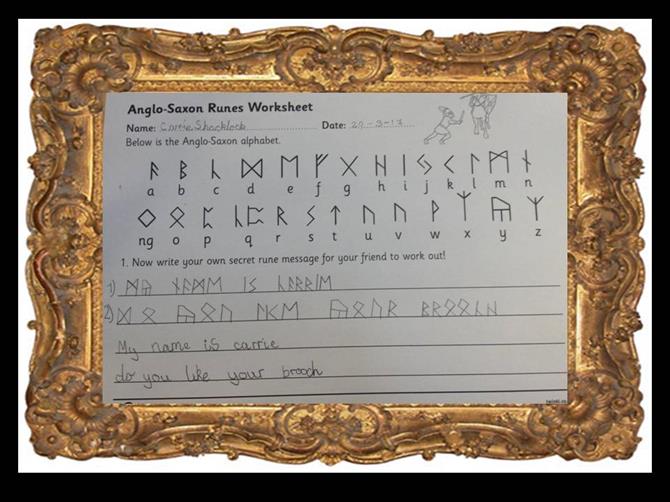 Anglo-Saxon Runes Worksheet
Name: Carrie Shacklock Date: 20-3-17
Below is the Anglo-Saxon alphabet.
ᚨ ᛒ ᚳ ᛞ ᛖ ᚠ ᚷ ᚻ ᛁ ᛃ ᚲ ᛚ ᛗ ᚾ
a b c d e f g h i j k l m n
ᛜ ᛟ ᛈ ᚳᛈ ᚱ ᛋ ᛏ ᚢ ᚢ ᚹ ᛉ ᚣ ᛉ
ng o p q r s t u v w x y z
1. Now write your own secret rune message for your friend to work out!
1) ᛗᚣ ᚾᚨᛗᛖ ᛁᛋ ᚳᚨᚱᚱᛁᛖ
2) ᛞᛟ ᚣᛟᚢ ᛚᚲᛖ ᚣᛟᚢᚱ ᛒᚱᛟᛟᚳᚻ
My name is carrie
do you like your brooch